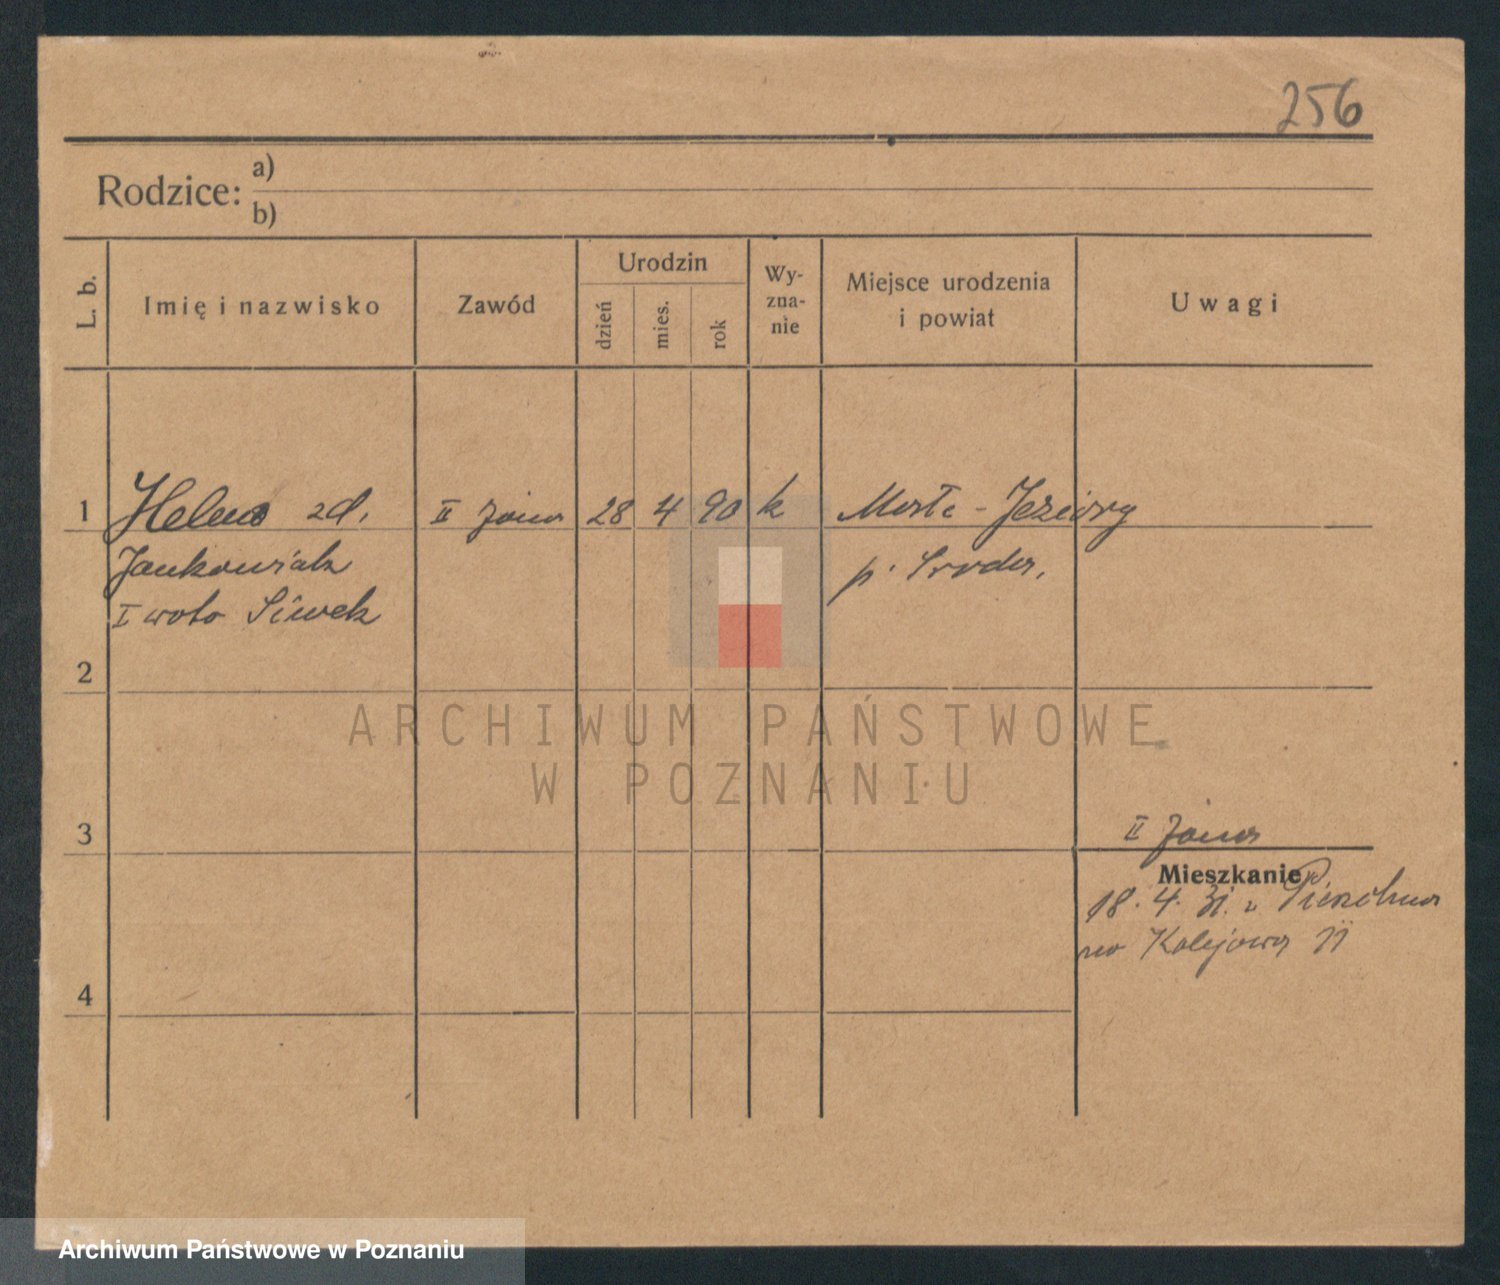 256
Rodzice: a)
b)
L. b.
Imię i nazwisko
Zawód
Urodzin
dzień
mies.
rok
Wy-
zna-
nie
Miejsce urodzenia
i powiat
Uwagi
1 Helena zd. II żona 28 4 90 k Małe-Jeziory
Jankowiak p. Środa.
I voto Siwek
2
ARCHIWUM PAŃSTWOWE
W POZNANIU
3
II żona
Mieszkanie
18. 4. 31. z
na Kolejowa 11
4
Archiwum Państwowe w Poznaniu